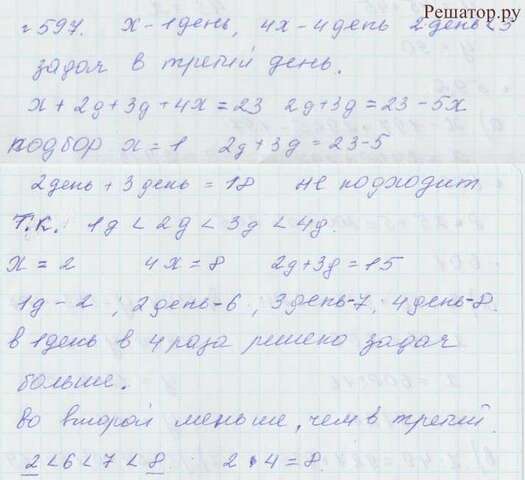 Решатор.ру
№597. x - 1 день, 4x - 4 день 2 день < 3
задач в третий день.
x + 2д + 3д + 4x = 23 2д + 3д = 23 - 5x
подбор x = 1 2д + 3д = 23 - 5
2 день + 3 день = 18 не подходит
т.к. 1д < 2д < 3д < 4д.
x = 2 4x = 8 2д + 3д = 15
1д - 2, 2 день - 6, 3 день - 7, 4 день - 8.
в 1 день в 4 раза решено задач
больше.
Во второй меньше, чем в третий
2 < 6 < 7 < 8. 2 · 4 = 8.